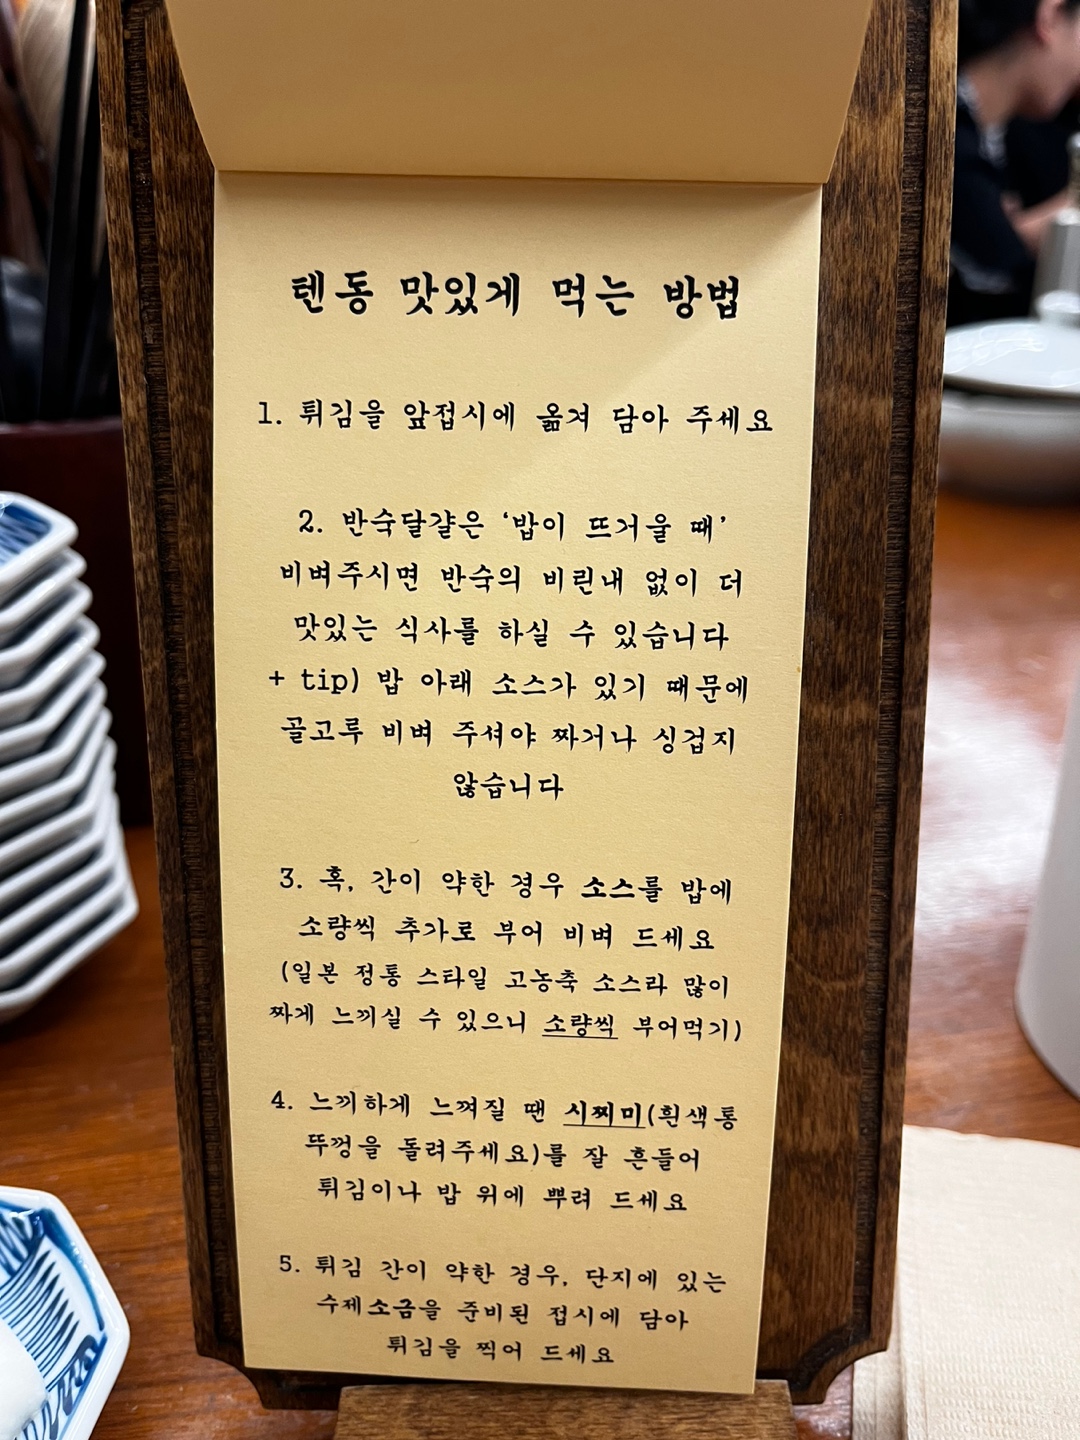 텐동 맛있게 먹는 방법
1. 튀김을 앞접시에 옮겨 담아 주세요
2. 반숙달걀은 ‘밥이 뜨거울 때’
비벼주시면 반숙의 비린내 없이 더
맛있는 식사를 하실 수 있습니다
+ tip) 밥 아래 소스가 있기 때문에
골고루 비벼 주셔야 짜거나 싱겁지
않습니다
3. 혹, 간이 약한 경우 소스를 밥에
소량씩 추가로 부어 비벼 드세요
(일본 정통 스타일 고농축 소스라 많이
짜게 느끼실 수 있으니 소량씩 부어먹기)
4. 느끼하게 느껴질 땐 시찌미(흰색통
뚜껑을 돌려주세요)를 잘 흔들어
튀김이나 밥 위에 뿌려 드세요
5. 튀김 간이 약한 경우, 단지에 있는
수제소금을 준비된 접시에 담아
튀김을 찍어 드세요